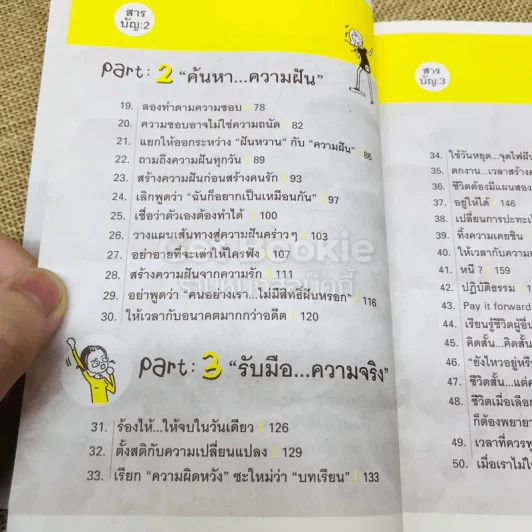 สาร
บัญ:2
Part: 2 "ค้นหา...ความฝัน"
19. ลองทำตามความชอบ | 78
20. ความชอบอาจไม่ใช่ความถนัด | 82
21. แยกให้ออกระหว่าง "ฝันหวาน" กับ "ความฝัน" | 86
22. ถามถึงความฝันทุกวัน | 89
23. สร้างความฝันก่อนสร้างคนรัก | 93
24. เลิกพูดว่า "ฉันก็อยากเป็นเหมือนกัน" | 97
25. เชื่อว่าตัวเองต้องทำได้ | 100
26. วางแผนเส้นทางสู่ความฝันคร่าวๆ | 103
27. อย่าอายที่จะเล่าให้ใครฟัง | 107
28. สร้างความฝันจากความรัก | 111
29. อย่าพูดว่า "คนอย่างเรา...ไม่มีสิทธิ์ฝันหรอก" | 116
30. ให้เวลากับอนาคตมากกว่าอดีต | 120
Part: 3 "รับมือ...ความจริง"
31. ร้องไห้...ให้จบในวันเดียว | 126
32. ตั้งสติกับความเปลี่ยนแปลง | 129
33. เรียก "ความผิดหวัง" ซะใหม่ว่า "บทเรียน" | 133
สาร
บัญ:3
34. ใช้วันหยุด...จุดไฟฝัน
35. ตกงาน...เวลาสร้าง
36. ชีวิตต้องมีแผนสอง
37. อยู่ให้ได้ | 146
38. เปลี่ยนการปะทะ
39. ทิ้งความเคยชิน
40. ให้เวลากับความ
41. หนี ? | 159
42. ปฏิบัติธรรม |
43. Pay it forward
44. เรียนรู้ชีวิตผู้อื่น
45. คิดสั้น...คิดสั้น
46. "ยังไหวอยู่
47. ชีวิตสั้น...แต่
48. ชีวิตเมื่อเลือก
ก็ต้องพยายาม
49. เวลาที่ควร
50. เมื่อเราไม่
GetBookie